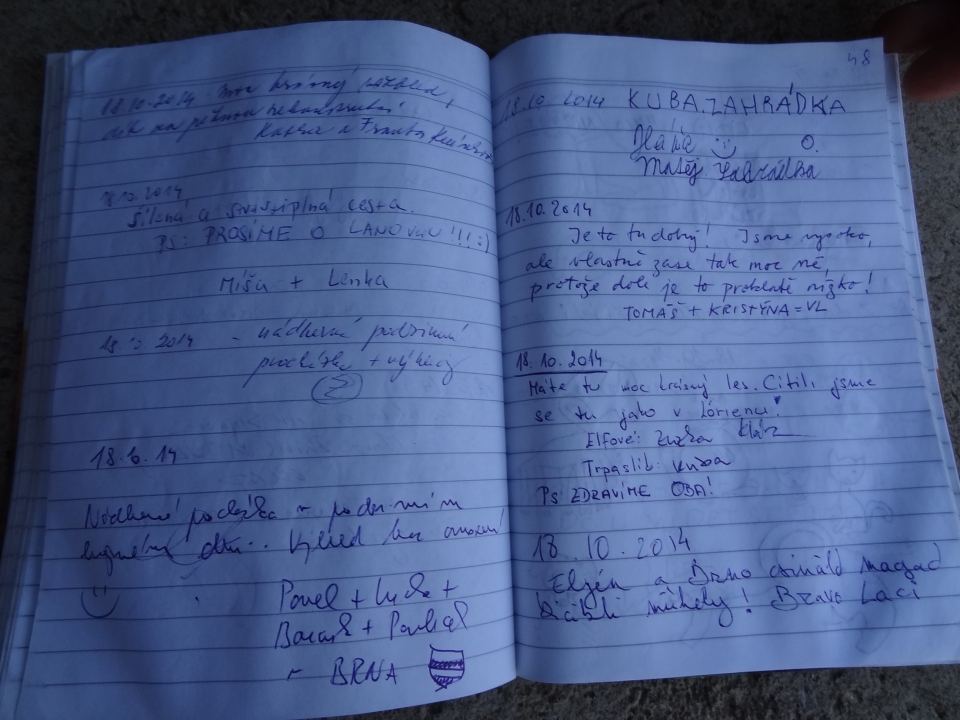 18.10.2014 moc krásný
Kačka a Franta
18.10.2014
Šílená a strastiplná cesta.
PS: PROSÍME O LANOVKU!!! :)
Míša + Lenka
18.10.2014 - nádherná podzimní
procházka + výhledy
18.6.14
Nádherná procházka v podzimním
dni.. Výhled bez omezení
Pavel + Lucka +
+
z BRNA
48
18.10 2014 KUBA.ZAHRÁDKA
O.
Matěj Zahrádka
18.10.2014
Je to tu dobrý! Jsme vysoko,
ale vlastně zase tak moc ně,
protože dole je to proklatě nízko!
TOMÁŠ + KRISTÝNA = VL
18.10.2014
Máte tu moc krásný les. Cítili jsme
se tu jako v Lórienu!
Elfové: Zuzka
Trpaslík: Kuba
PS: ZDRAVÍME OBA!
18.10.2014
Eljén a Brno csináld magad
műhely! Bravo Laci